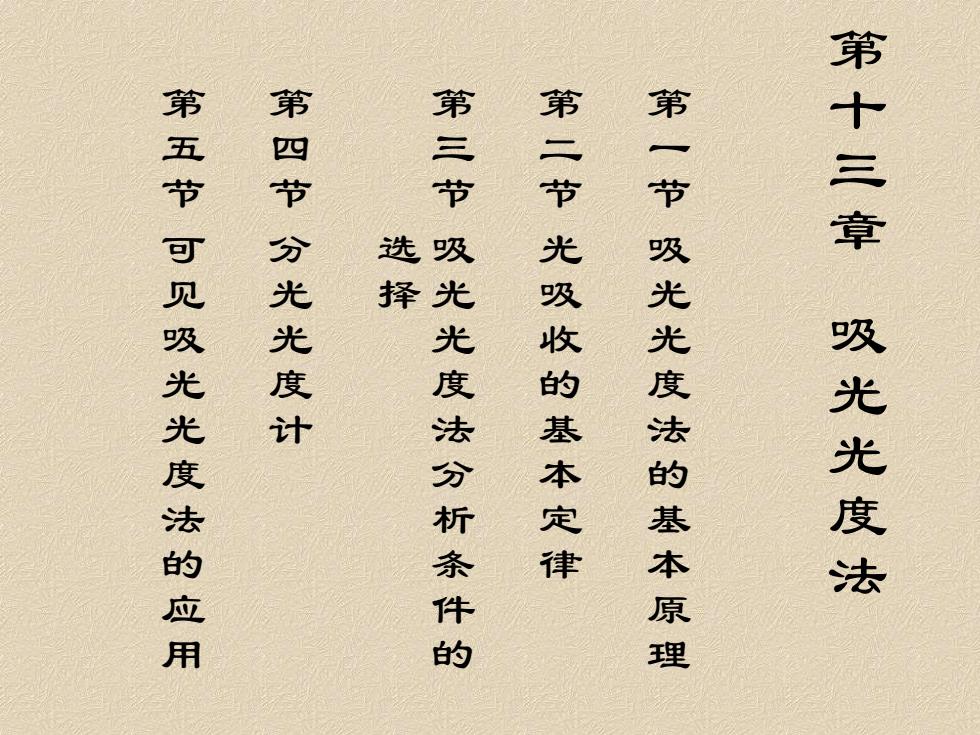 第十三章 吸光光度法
第一节 吸光光度法的基本原理
第二节 光吸收的基本定律
第三节 吸光光度法分析条件的
选择
第四节 分光光度计
第五节 可见吸光光度法的应用